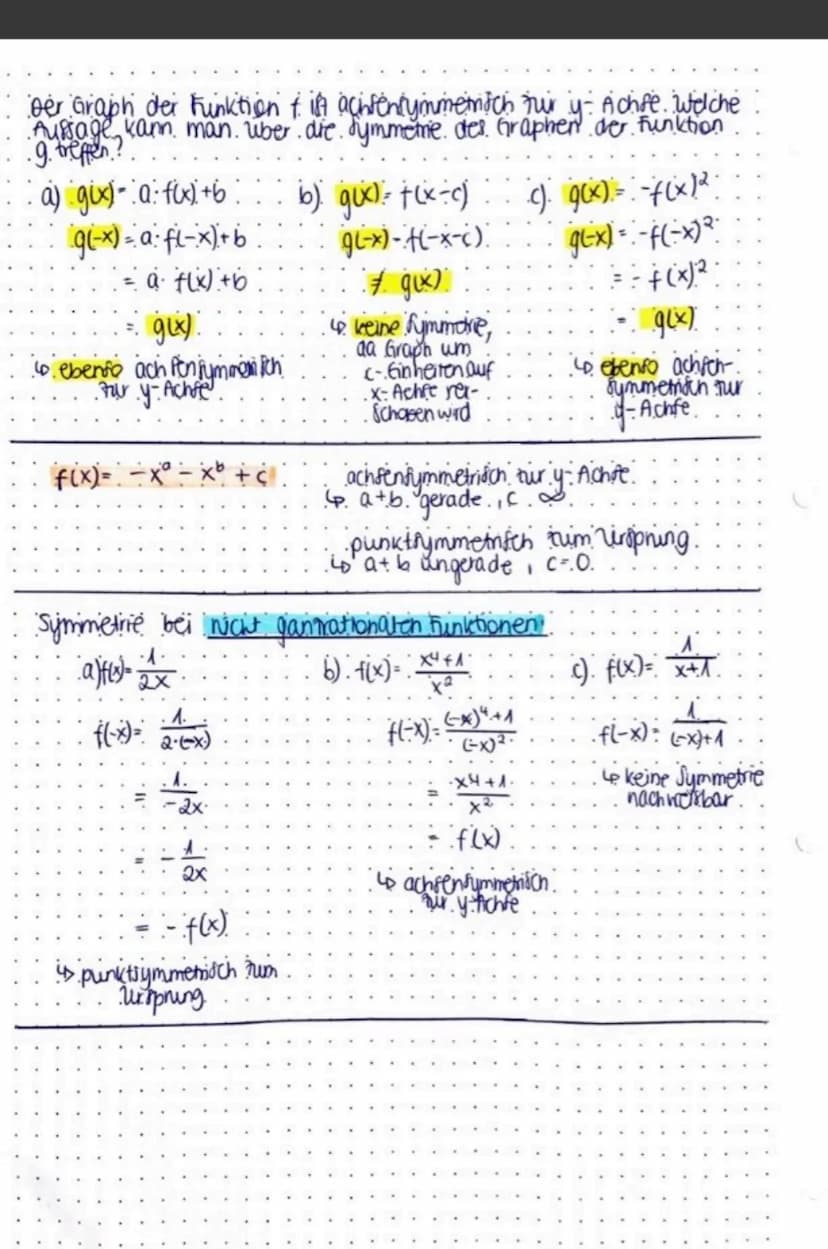 Der Graph der Funktion f ist achsensymmetrisch zur y-Achse. Welche
Aussage kann man über die Symmetrie des Graphen der Funktion
g treffen?
a) g(x) = a·f(x)+b
g(-x) = a·f(-x)+b
= a·f(x)+b
= g(x)
↳ ebenso achsensymmetrisch
zur y-Achse
b) g(x) = f(x-c)
g(-x) = f(-x-c)
≠ g(x)
↳ keine Symmetrie,
da Graph um
c-Einheiten auf
x-Achse ver-
schoben wird
c) g(x) = -f(x)²
g(-x) = -f(-x)²
= -f(x)²
= g(x)
↳ ebenso achsen-
symmetrisch zur
y-Achse
f(x) = -xᵃ - xᵇ + c
achsensymmetrisch zur y-Achse
↳ a+b gerade, c ∞
punktsymmetrisch zum Ursprung
↳ a+b ungerade, c=0
Symmetrie bei nicht ganzrationalen Funktionen
a) f(x) = 1/2x
f(-x) = 1/2·(-x)
= 1/-2x
= - 1/2x
= -f(x)
↳ punktsymmetrisch zum
Ursprung
b) f(x) = x⁴+1/x²
f(-x) = (-x)⁴+1/(-x)²
= x⁴+1/x²
= f(x)
↳ achsensymmetrisch
zur y-Achse
c) f(x) = 1/x+1
f(-x) = 1/(-x)+1
↳ keine Symmetrie
nachweisbar